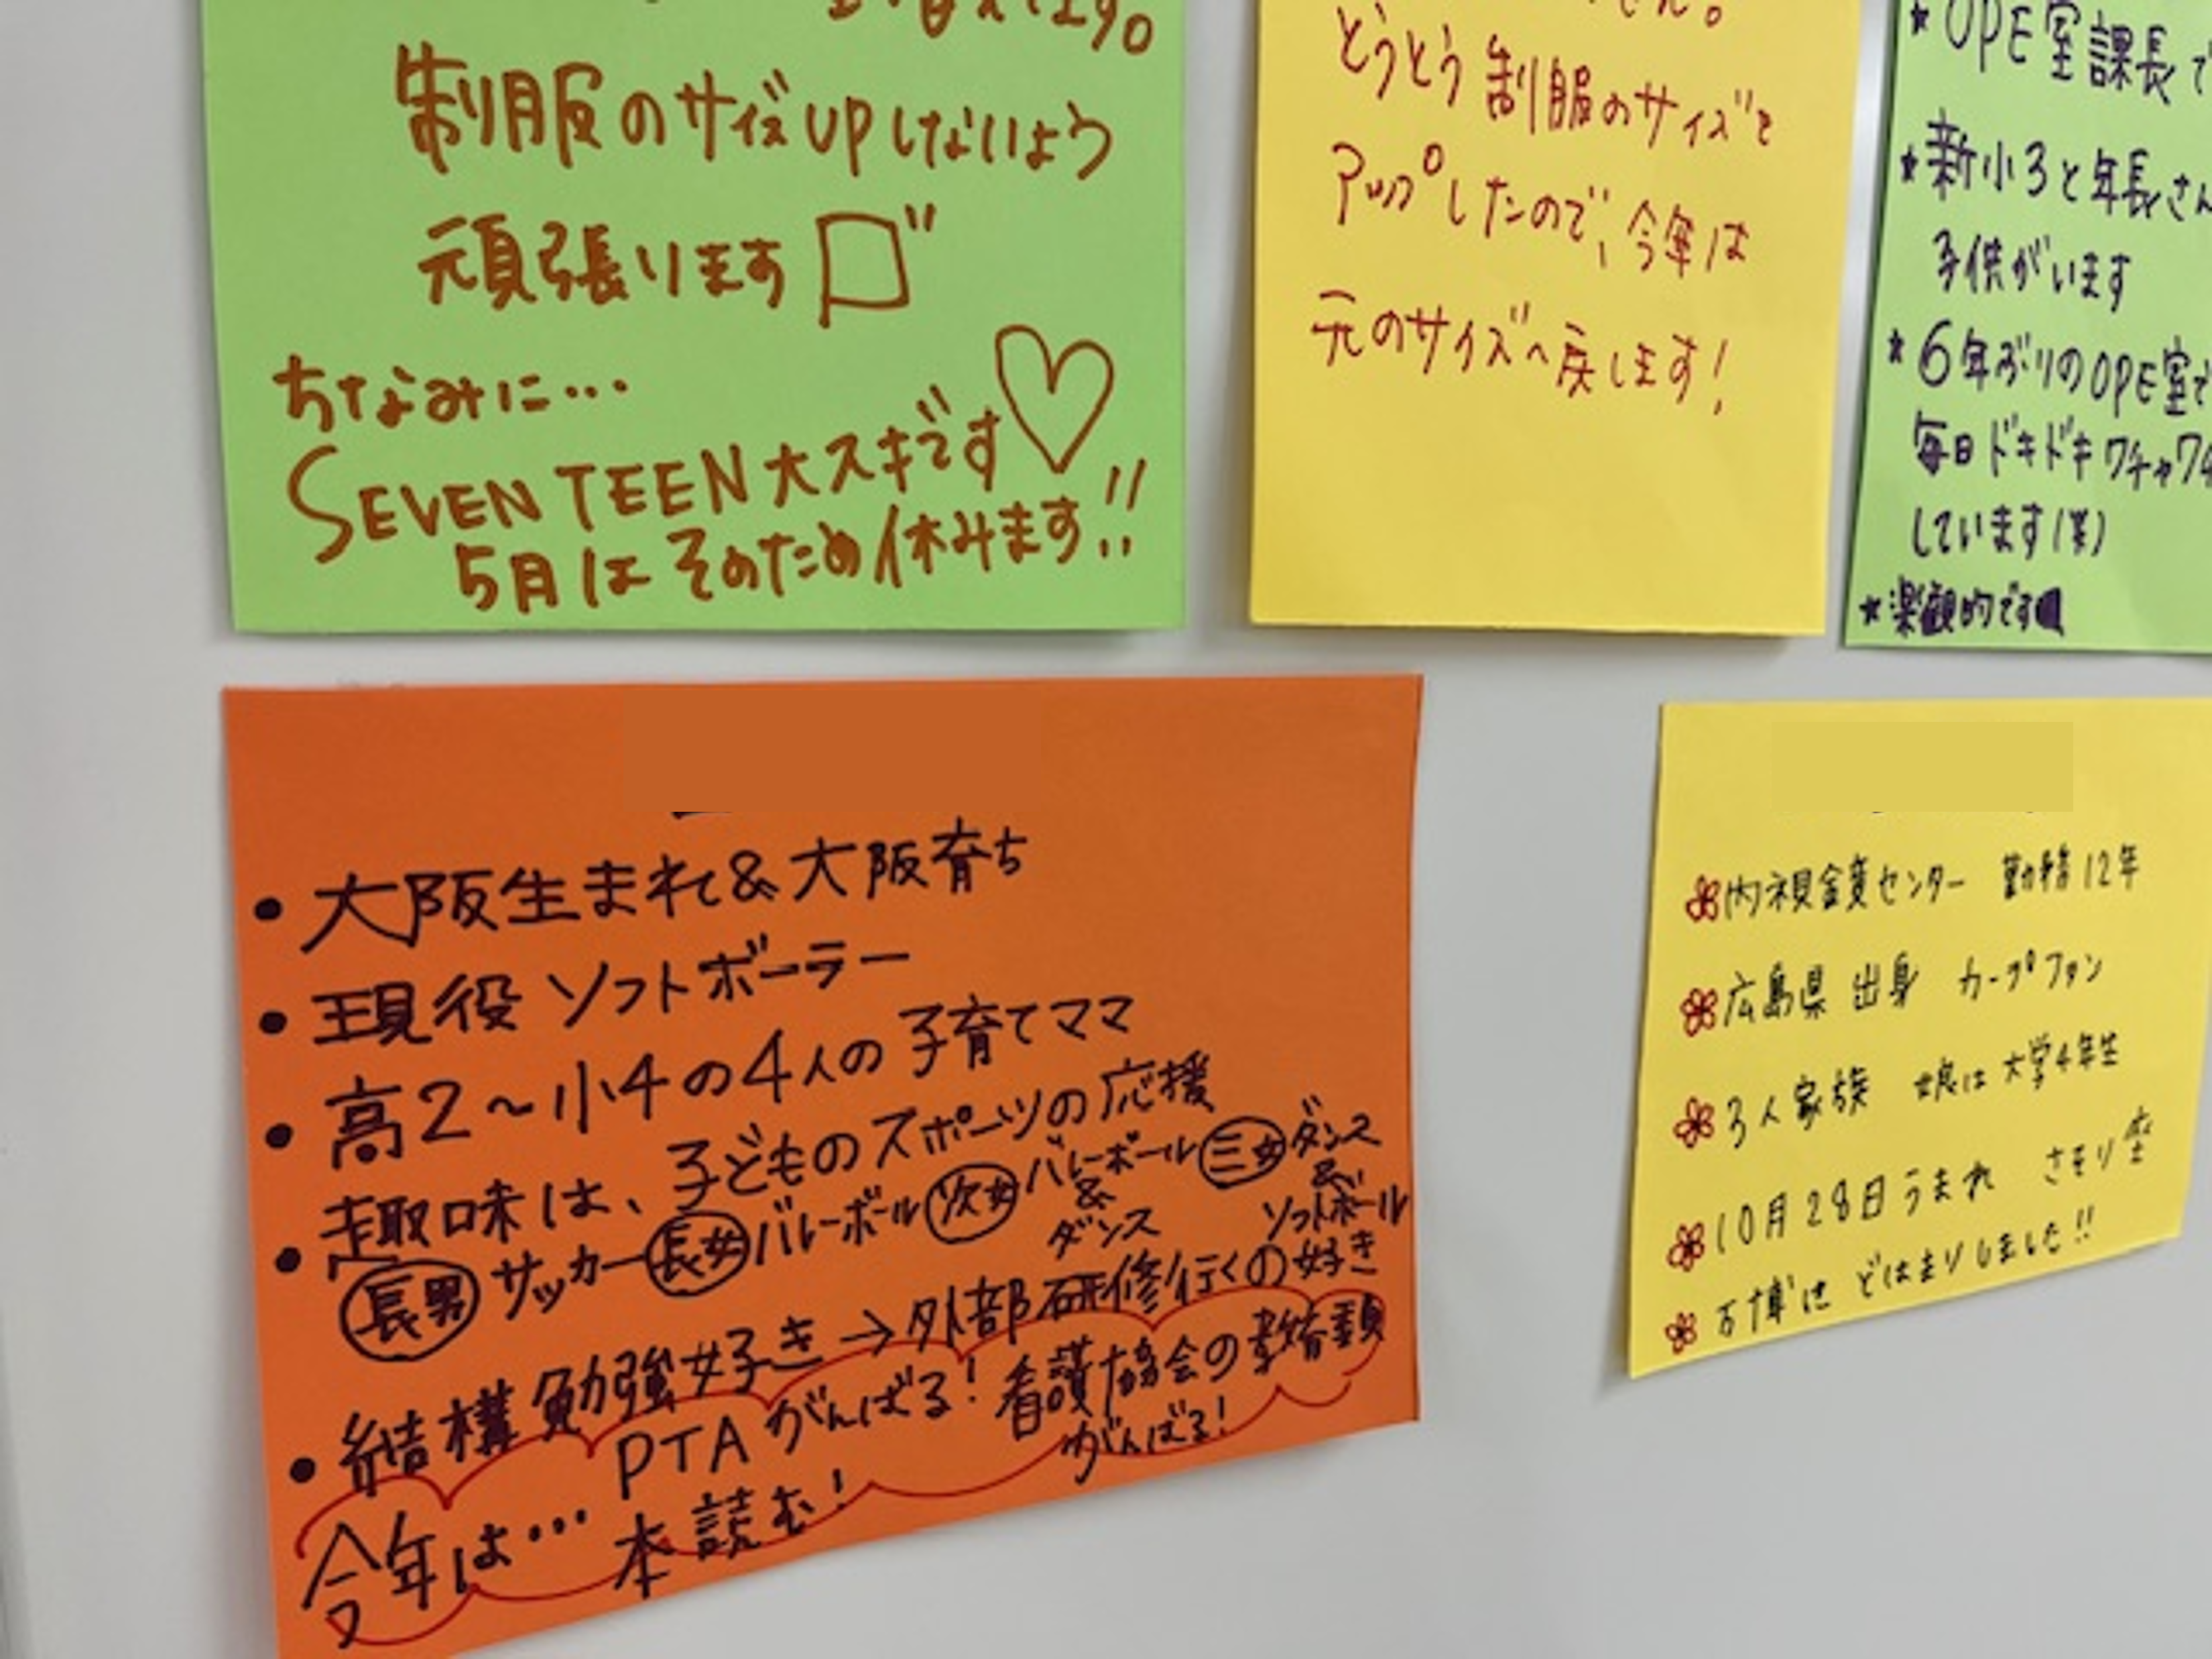 ます。
制服のサイズupしないよう
頑張ります
ちなみに…
SEVENTEEN大スキです♡
5月はそのため休みます!!
せん。
とうとう制服のサイズを
アップしたので、今年は
元のサイズへ戻します!
★OPE室課長で
★新小3と年長さん
子供がいます
★6年ぶりのOPE室で
毎日ドキドキワチャワチャ
しています(笑)
★楽観的です
•大阪生まれ&大阪育ち
•現役ソフトボーラー
•高2~小4の4人の子育てママ
•趣味は、子どものスポーツの応援
長男サッカー長女バレーボール次女バレーボール&ダンス三女ダンス&ソフトボール
•結構勉強好き→外部研修行くの好き
今年は…PTAがんばる!看護協会の教育委員がんばる!
本読む!
内視鏡センター 勤務12年
広島県出身 カープファン
3人家族 娘は大学4年生
10月28日うまれ さそり座
万博はどはまりしました!!